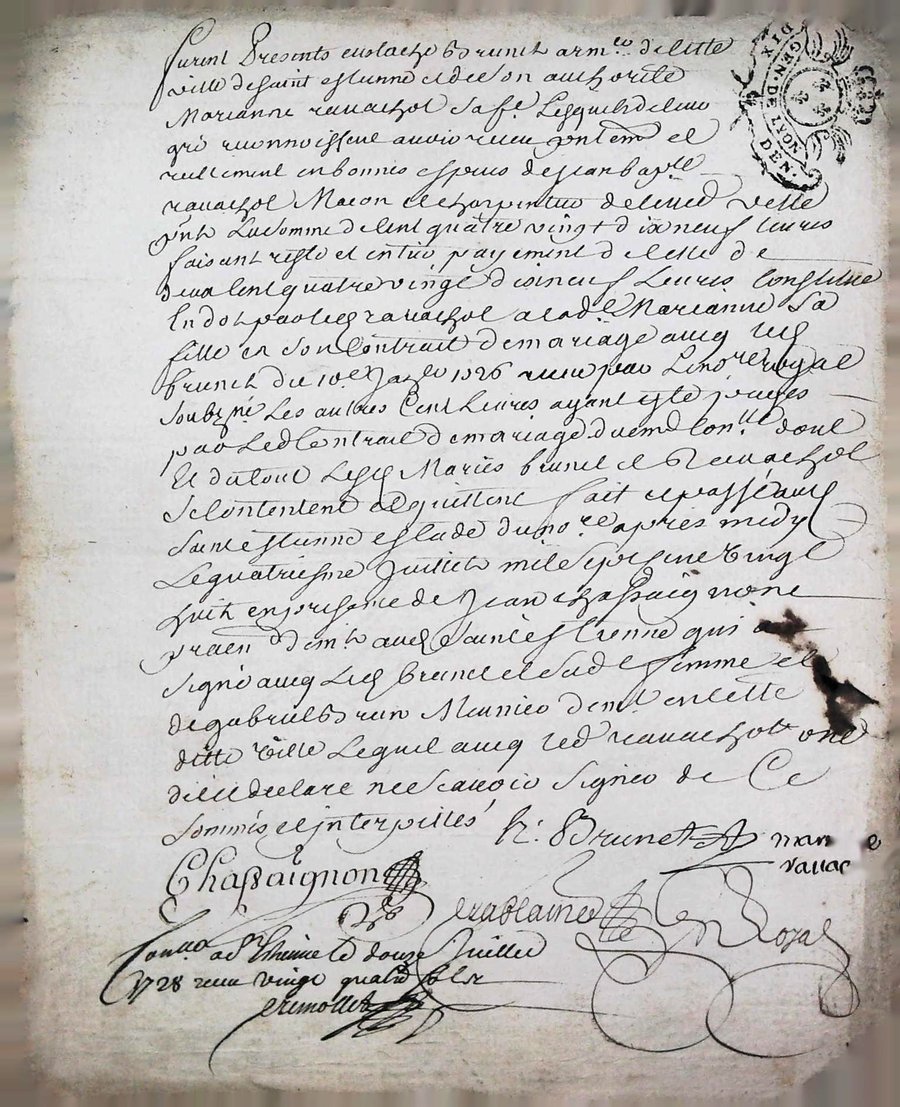 GEN. DE LYON
DIX DEN.
furent Presents eustache Brunet arm.er de cette
ville de saint estienne et de son authorite
Marianne ravachol sa fe. Lesquels de leur
gré reconnoissent avoir receu contem et
reellement en bonnes espesses de jean bapte
ravachol Mason et charpentier de lad ville
pnt La somme de Cent quatre vingt dixneuf livres
faisant reste et entier payement de Celle de
deux Cent quatre vingt dixneuf Livres Constitue
En dot par led ravachol a lade Marianne Sa
fille en son Contrait de mariage avecq led
brunet du 10e Janer 1726 receu par Le nore royal
soubzné Les autres Cent Livres ayant esté payés
par Led Contrait de mariage dont
Et du tout Lesd Mariés brunet et ravachol
se Contentent et quittent fait et passé aud
saint estienne estude du nore apres midy
Le quatriesme Juillet mile sept sent vingt
huit en presence de Jean chassaignon
praen demt aud saint estienne qui a
signé avecq Led brunet et sade femme et
de gabriel brun Meunier demt en cette
ditte ville Lequel avecq led ravachol ont
dit et declare ne scavoir signer de Ce
sommés et interpellés
E. Brunet
mar e
ravac
Chassaignon
Royal
Con.lé a St Etienne le douze Juillet
1728 receu vingt quatre sols